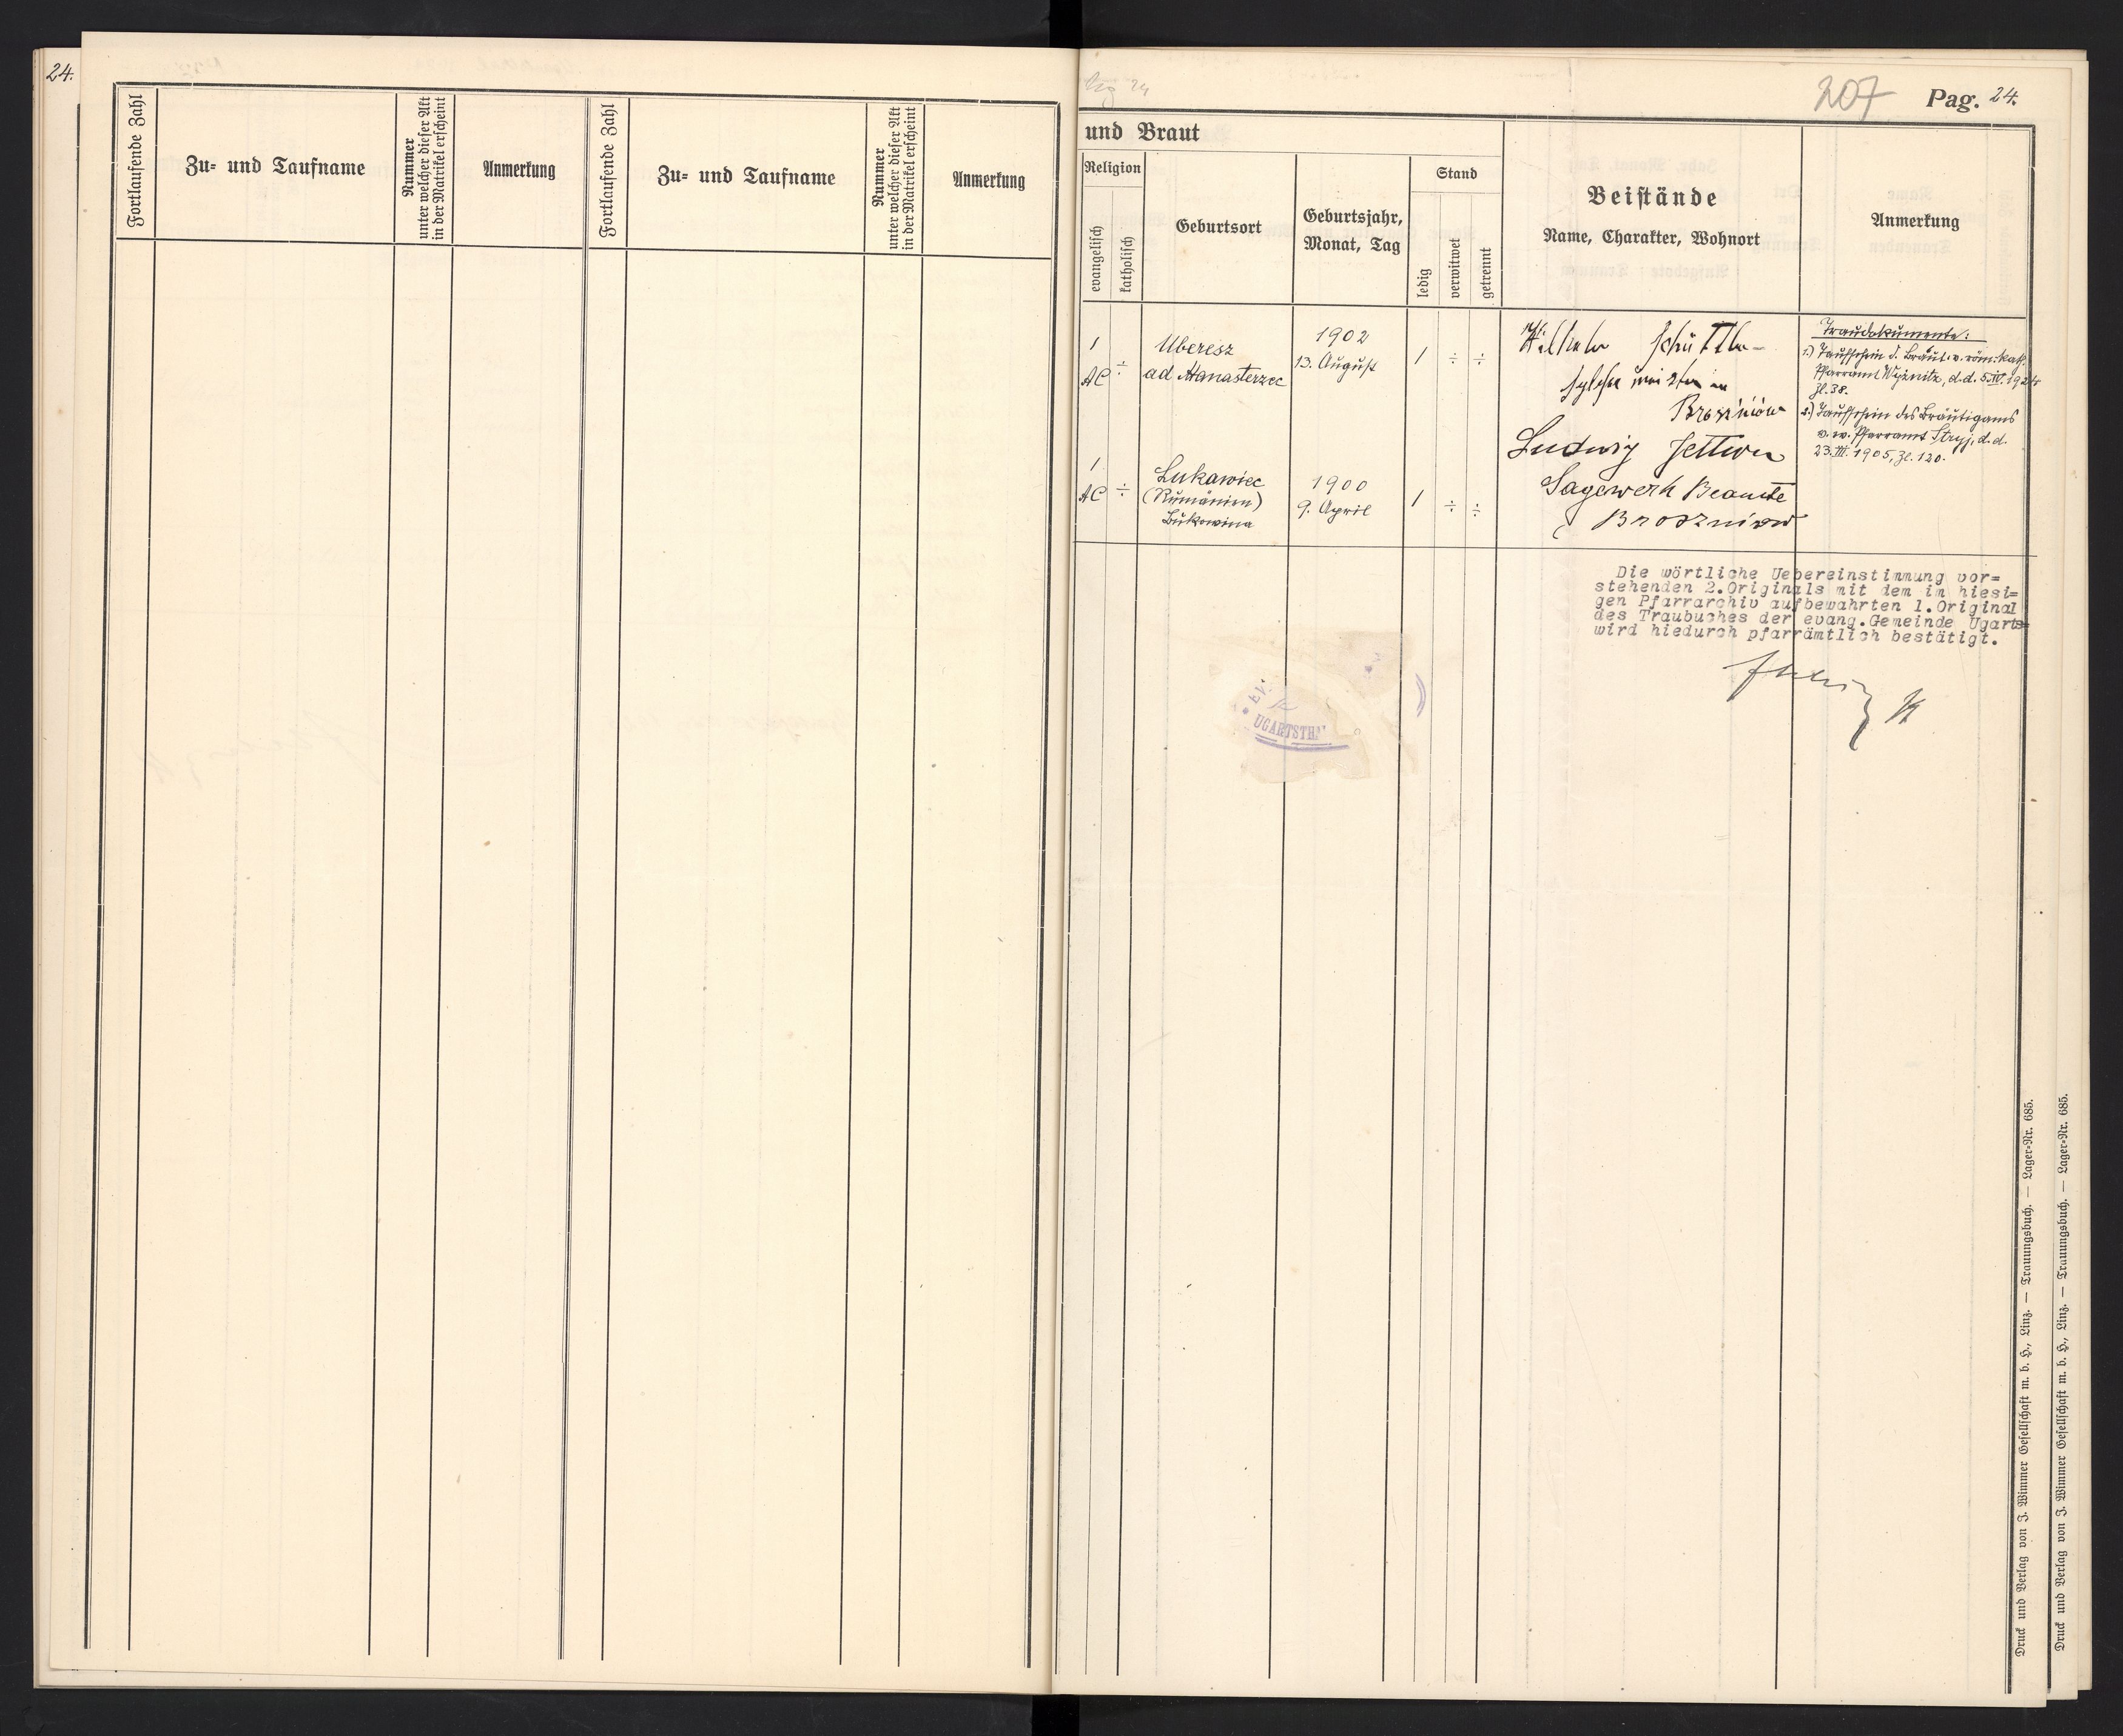 24.
Fortlaufende Zahl
Zu- und Taufname
Nummer
unter welcher dieser Akt
in der Matrikel erscheint
Anmerkung
Fortlaufende Zahl
Zu- und Taufname
Nummer
unter welcher dieser Akt
in der Matrikel erscheint
Anmerkung
207 Pag. 24.
und Braut
Religion
evangelisch
katholisch
Geburtsort
Geburtsjahr,
Monat, Tag
Stand
ledig
verwitwet
getrennt
Beistände
Name, Charakter, Wohnort
Anmerkung
1
AC ÷
Uberesz
ad Manasterzec
1902
13. August
1 ÷ ÷
Wilhelm
in
Broszniów
Ludwig
Sagewerk Beamte
Broszniow
Traudokumente:
1.) Taufschein d. Braut v. röm. kath.
Pfarramt Wyżnitz, d.d. 5.IV.1924
Zl. 38.
2.) Taufschein des Bräutigams
v. ev. Pfarramt Stryj, d.d.
23.III.1905, Zl. 120.
1
AC ÷
Lukawiec
(Rumänien)
Bukowina
1900
9. April
1 ÷ ÷
Die wörtliche Uebereinstimmung vor=
stehenden 2.Originals mit dem im hiesi=
gen Pfarrarchiv aufbewahrten 1.Original
des Traubuches der evang.Gemeinde Ugarts=
wird hiedurch pfarrämtlich bestätigt.
Ev.
UGARTSTHA
Druck und Verlag von J. Wimmer Gesellschaft m. b. H., Linz. — Trauungsbuch. — Lager-Nr. 685.
Druck und Verlag von J. Wimmer Gesellschaft m. b. H., Linz. — Trauungsbuch. — Lager-Nr. 685.